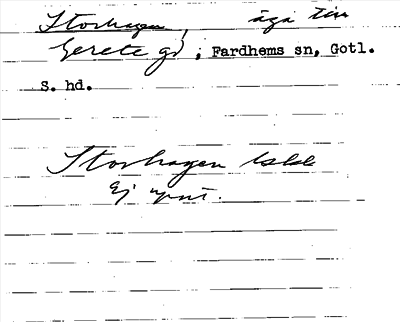 Storhagen, äga till
Gerete gd, Fardhems sn, Gotl.
S. hd.
Storhagen
Ej